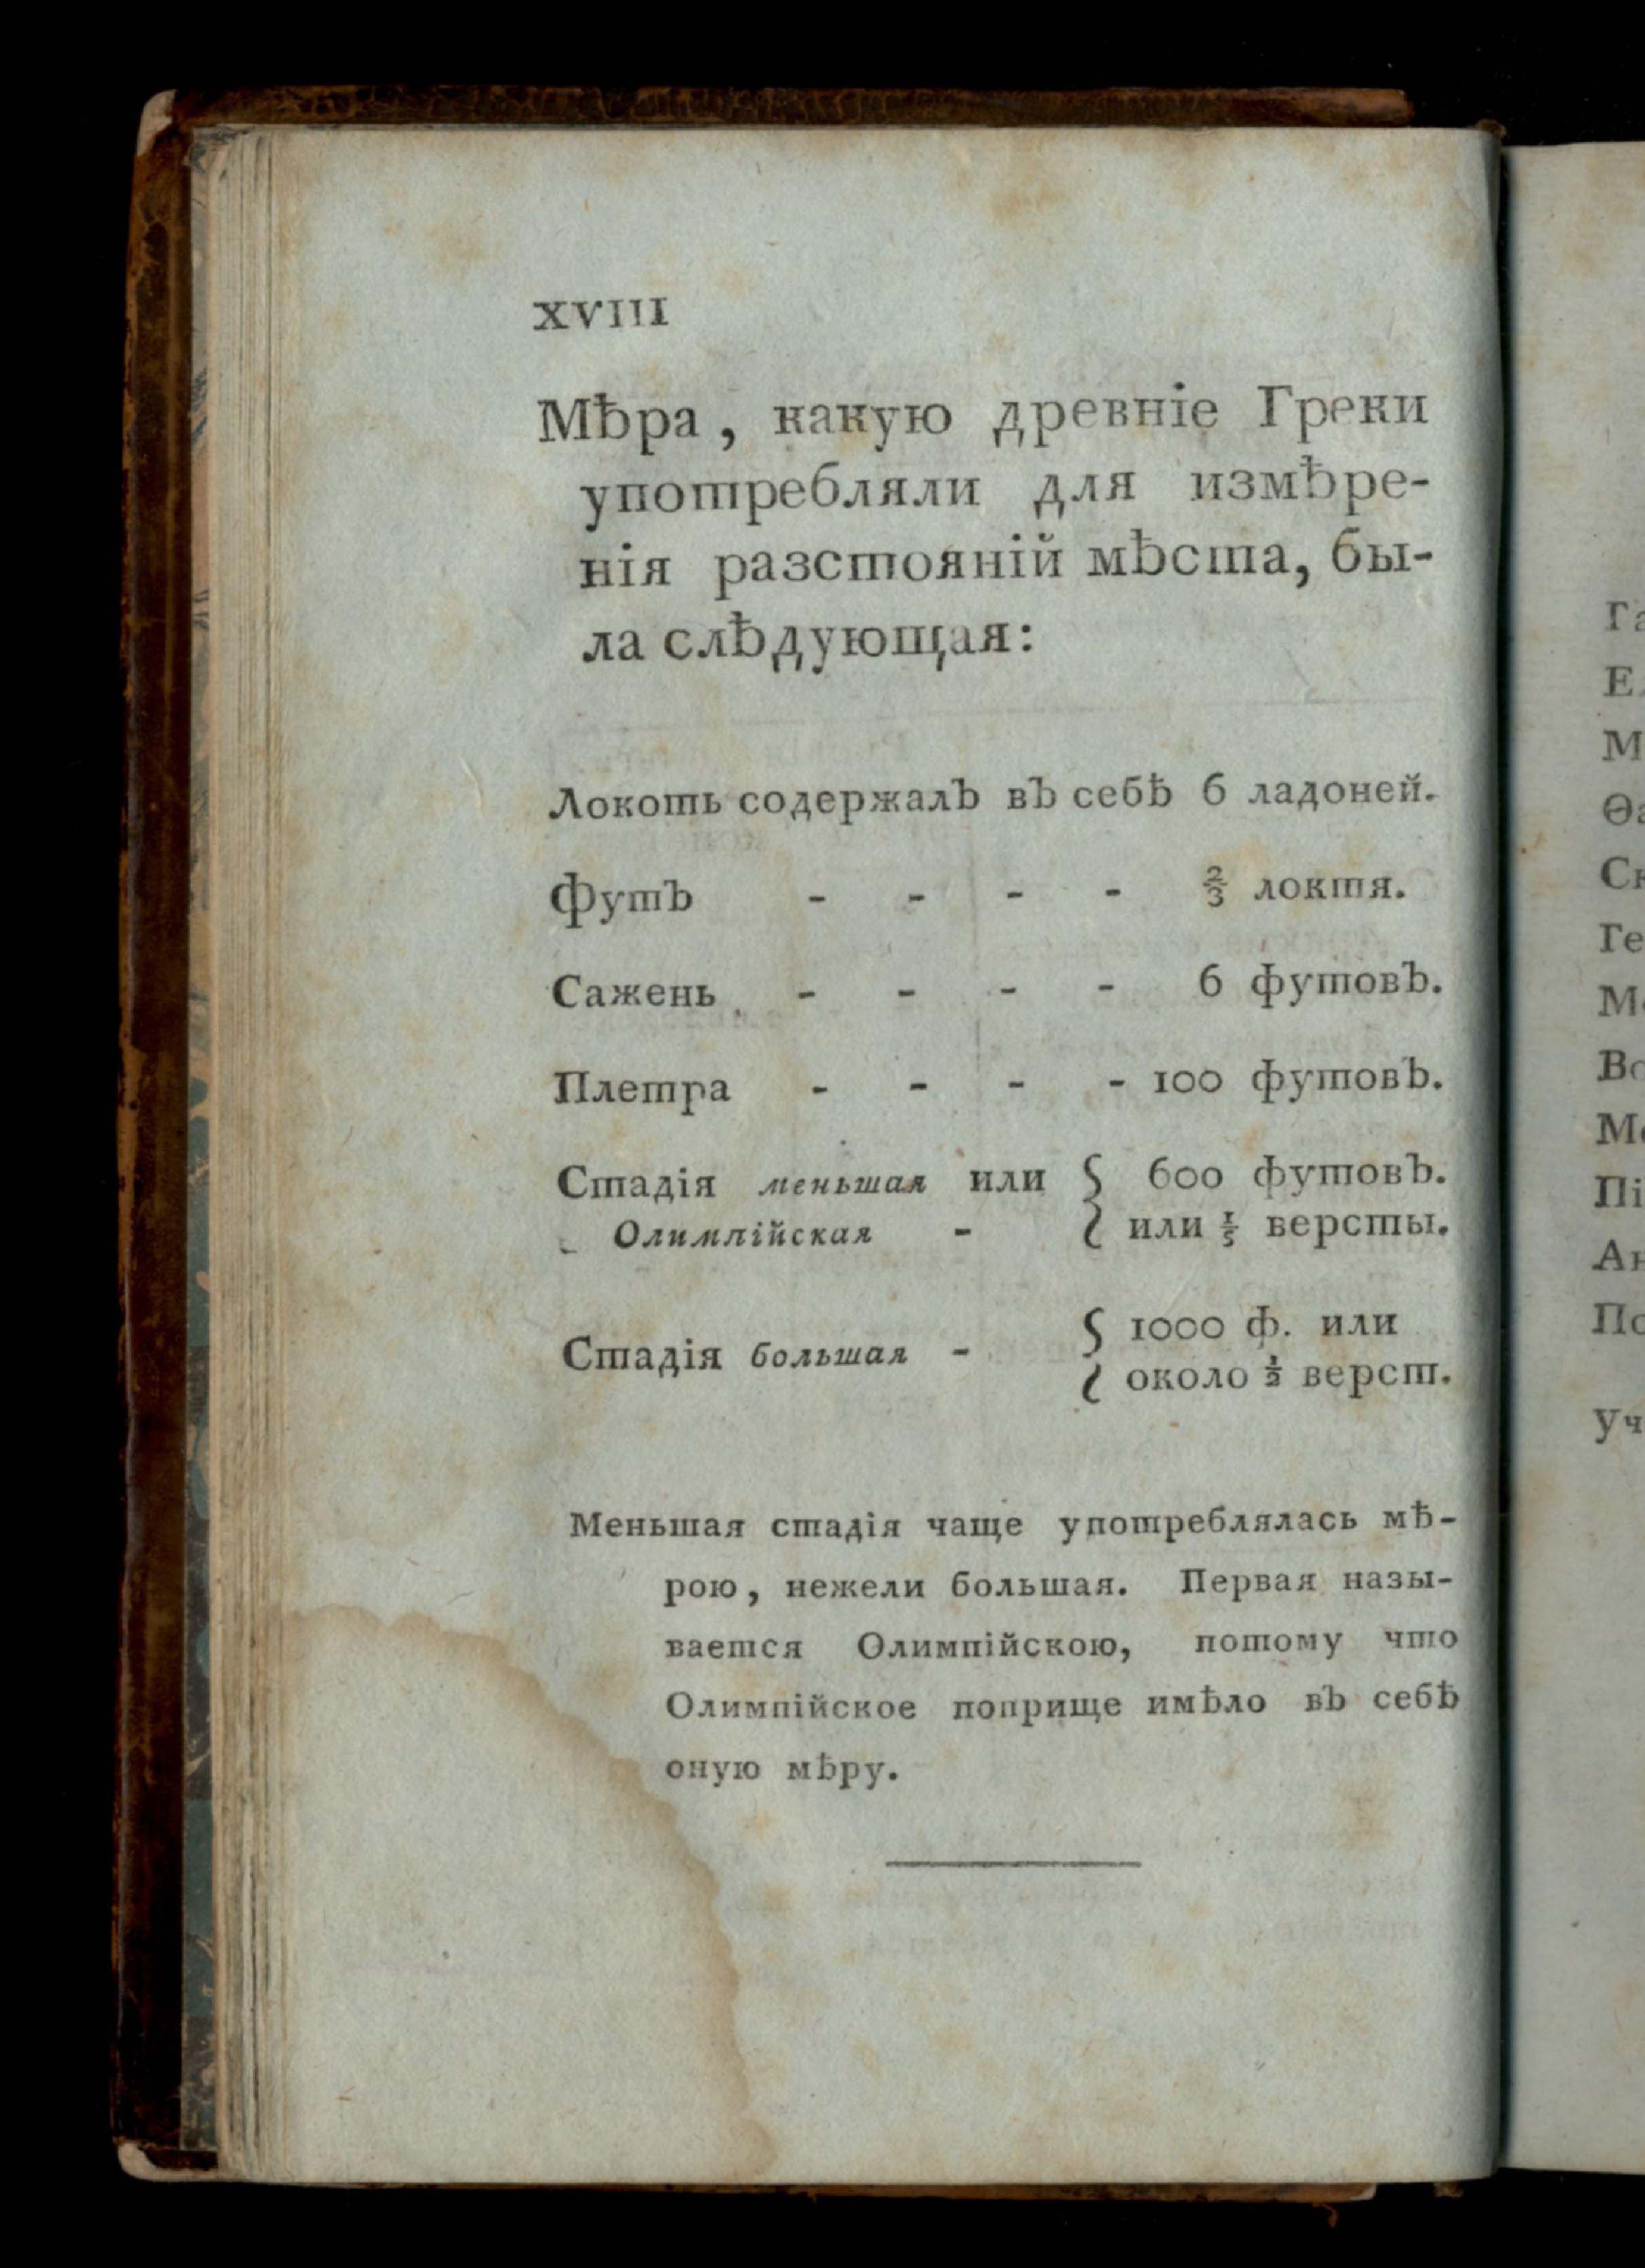 XVIII
Мѣра, какую древніе Греки
употребляли для измѣре-
нія разстояній мѣста, бы-
ла слѣдующая:
Локоть содержалъ въ себѣ 6 ладоней.
Футъ - - - - ⅔ локтя.
Сажень - - - - 6 футовъ.
Плетра - - - - 100 футовъ.
Стадія меньшая или { 600 футовъ.
Олимпійская - { или ⅕ версты.
Стадія большая - { 1000 ф. или
около ½ верст.
Меньшая стадія чаще употреблялась мѣ-
рою, нежели большая. Первая назы-
вается Олимпійскою, потому что
Олимпійское поприще имѣло въ себѣ
оную мѣру.
Га
Е
М
Ѳа
Ск
Ге
Мо
Во
Пі
Ан
По
Уч